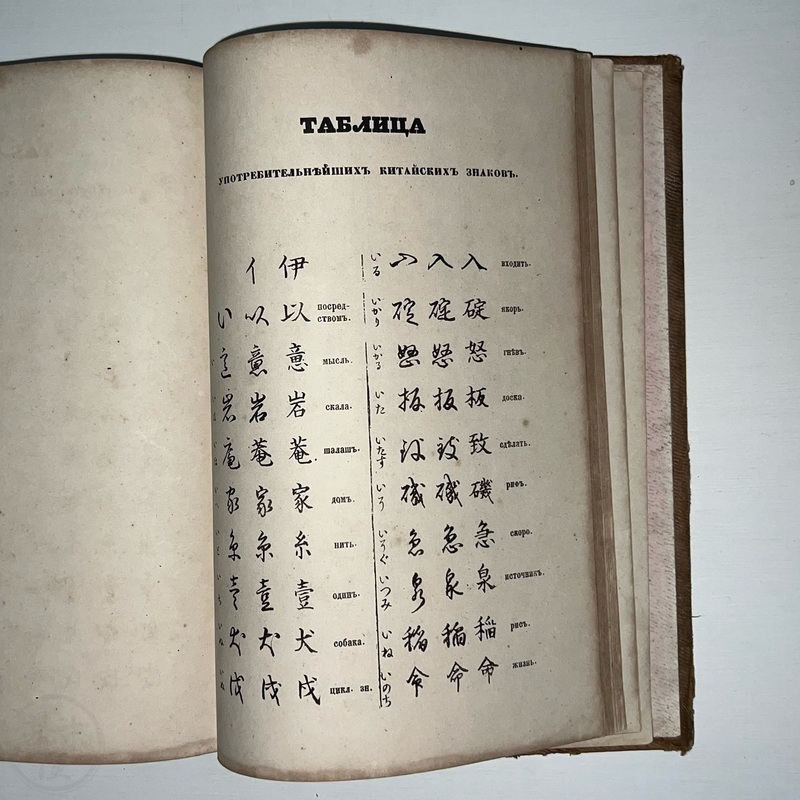 ТАБЛИЦА
УПОТРЕБИТЕЛЬНѢЙШИХЪ КИТАЙСКИХЪ ЗНАКОВЪ.
亻 伊
い 以 以 посред-
ствомъ.
意 意 мысль.
岩 岩 岩 скала.
庵 菴 菴 шалашъ.
家 家 家 домъ.
糸 糸 糸 нить.
壹 壹 壹 одинъ.
犬 犬 犬 собака.
戌 戌 戌 цикл. зн.
いる 入 入 入 входить.
いかり 碇 碇 碇 якорь.
いかる 怒 怒 怒 гнѣвъ.
いた 板 板 板 доска.
いたす 致 致 致 сдѣлать.
いそ 磯 磯 磯 рифъ.
いそぐ 急 急 急 скоро.
いつみ 泉 泉 泉 источникъ.
いね 稲 稲 稲 рисъ.
いのち 命 命 命 жизнь.